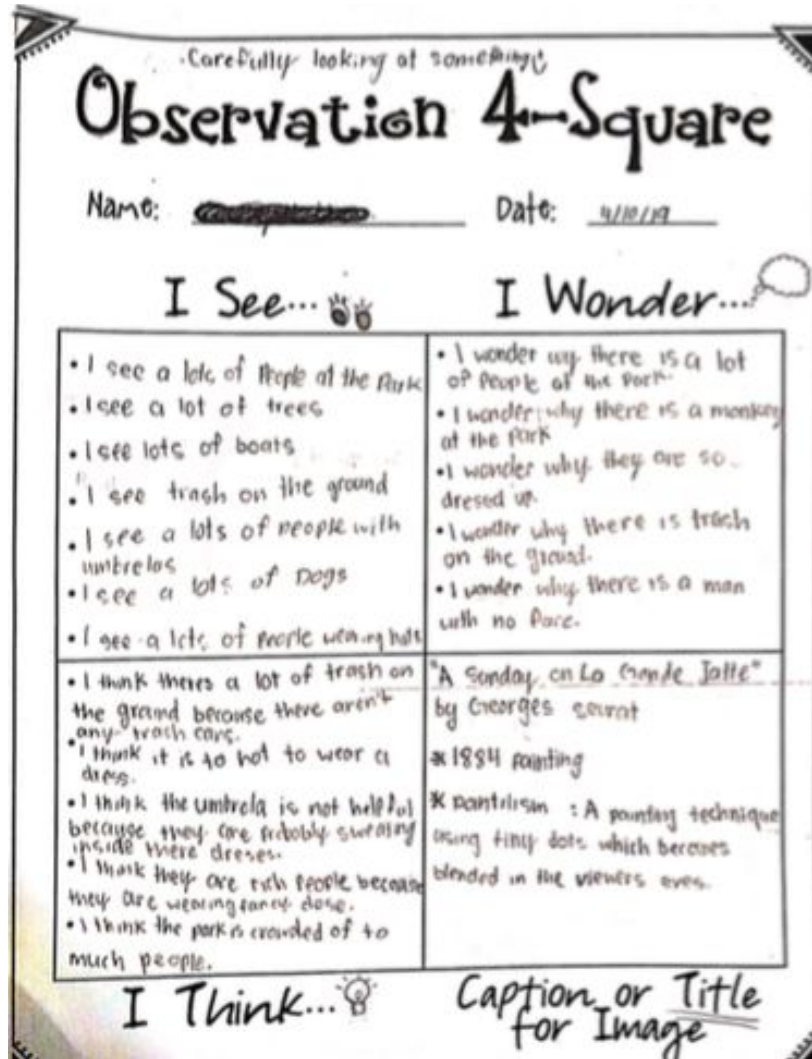 ·Carefully looking at something
Observation 4-Square
Name:
Date: 4/10/19
I See...
• I see a lots of People at the Park
• I see a lot of trees
• I see lots of boats
• I see trash on the ground
• I see a lots of people with
umbrelas
• I see a lots of Dogs
• I see a lots of people wearing hats
I Wonder...
• I wonder wy there is a lot
of People at the Park.
• I wonder why there is a monkey
at the Park
• I wonder why they are so
dresed up.
• I wonder why there is trash
on the ground.
• I wonder why there is a man
with no Face.
• I think theres a lot of trash on
the ground because there aren't
any trash cans.
• I think it is to hot to wear a
dress.
• I think the umbrela is not helpful
because they are probobly sweating
inside there dreses.
• I think they are rich People because
they are wearing fancy close.
• I think the park is crowded of to
much people.
I Think...
"A Sunday on La Grande Jatte"
by Georges seurat
* 1884 painting
* pantilism : A painting technique
using tiny dots which becomes
blended in the viewers eyes.
Caption or Title
for Image